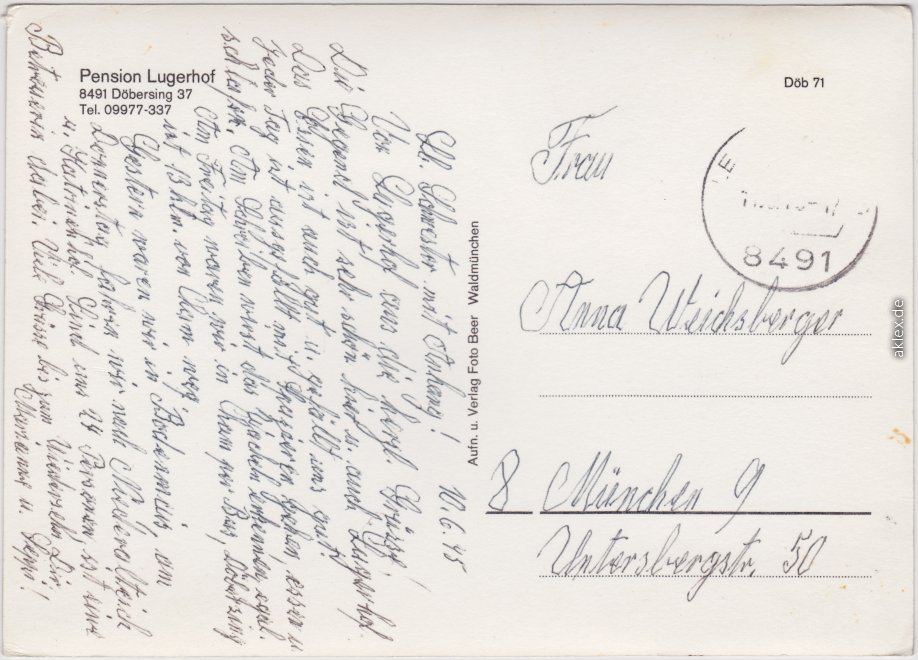 Pension Lugerhof
8491 Döbersing 37
Tel. 09977-337
10.6.75
Lb. Schwester mit Anhang!
Vom Lugerhof aus die herzl. Grüße!
Die Gegend ist sehr schön hier u. auch Lugerhof.
Das Essen ist auch gut u. gefällt uns gut.
Jeder Tag ist ausgefüllt mit Spazieren gehen, essen u.
schlafen. Am Schreiben wirst das Wackeln kennen, egal.
Am Freitag waren wir in Cham per Bus, Döbersing
ist 13 klm. von Cham weg.
Gestern waren wir in Bodenmais, am
Donnerstag fahren wir nach Niederalteich
u. Sind nur 24 Personen ist eine
Betreuerin dabei. Viele Grüsse bis zum Wiedersehn Dir
Marianne u. Sepp!
Aufn. u. Verlag Foto Beer Waldmünchen
Döb 71
8491
Frau
Anna Weichsberger
8 München 9
Untersbergstr. 50
aklex.de